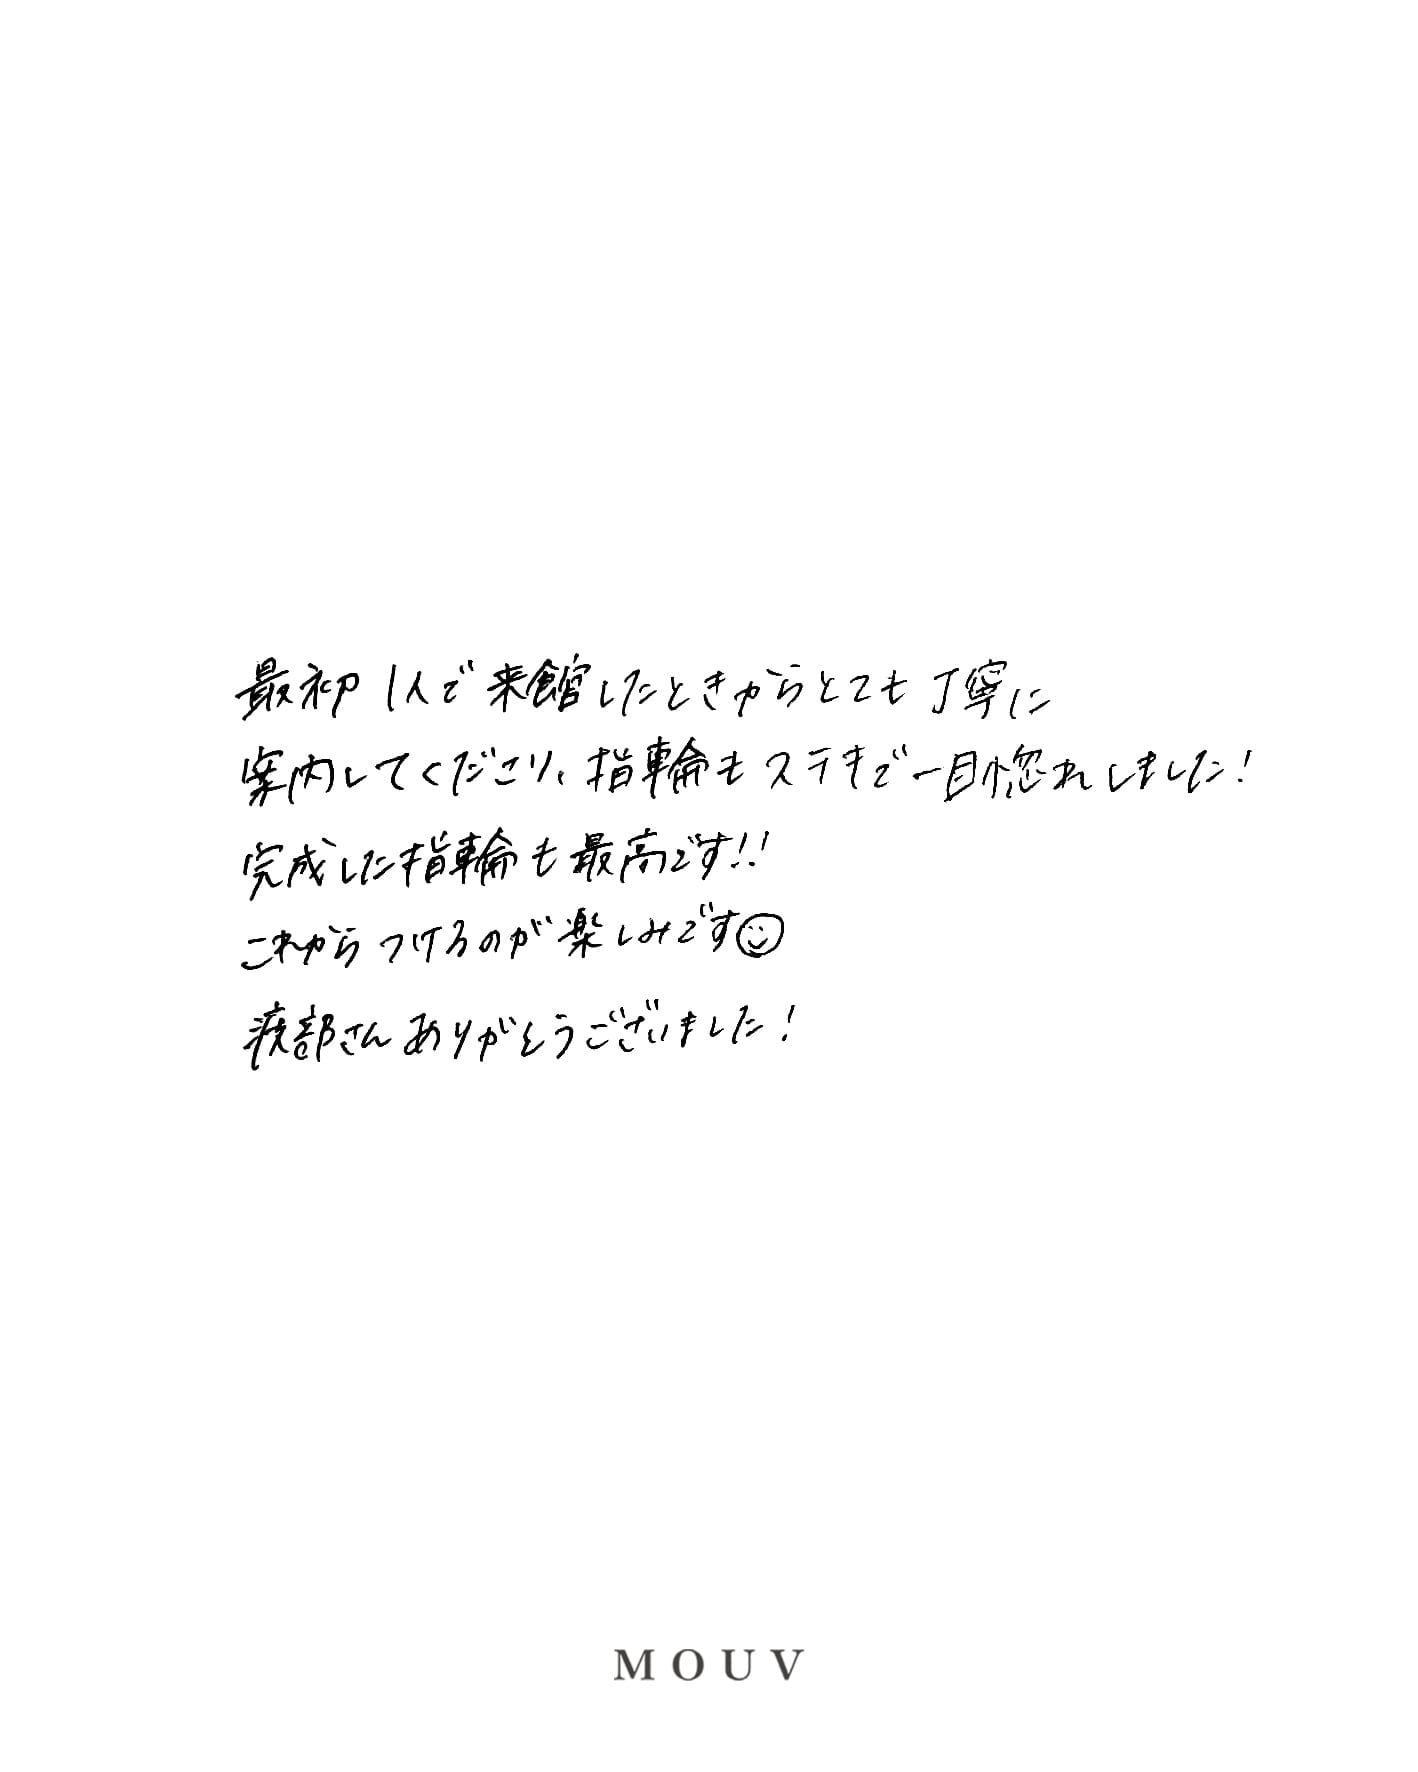 最初1人で来館したときからとても丁寧に
案内してくださり、指輪もステキで一目惚れしました!
完成した指輪も最高です!!
これからつけるのが楽しみです☺
渡部さんありがとうございました!
MOUV